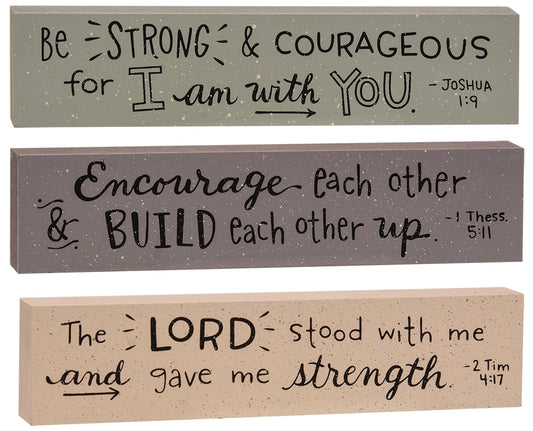 Be STRONG & COURAGEOUS
for I am with YOU. - JOSHUA
1:9
Encourage each other
& BUILD each other up. - 1 Thess.
5:11
The LORD stood with me
and gave me strength. - 2 Tim
4:17